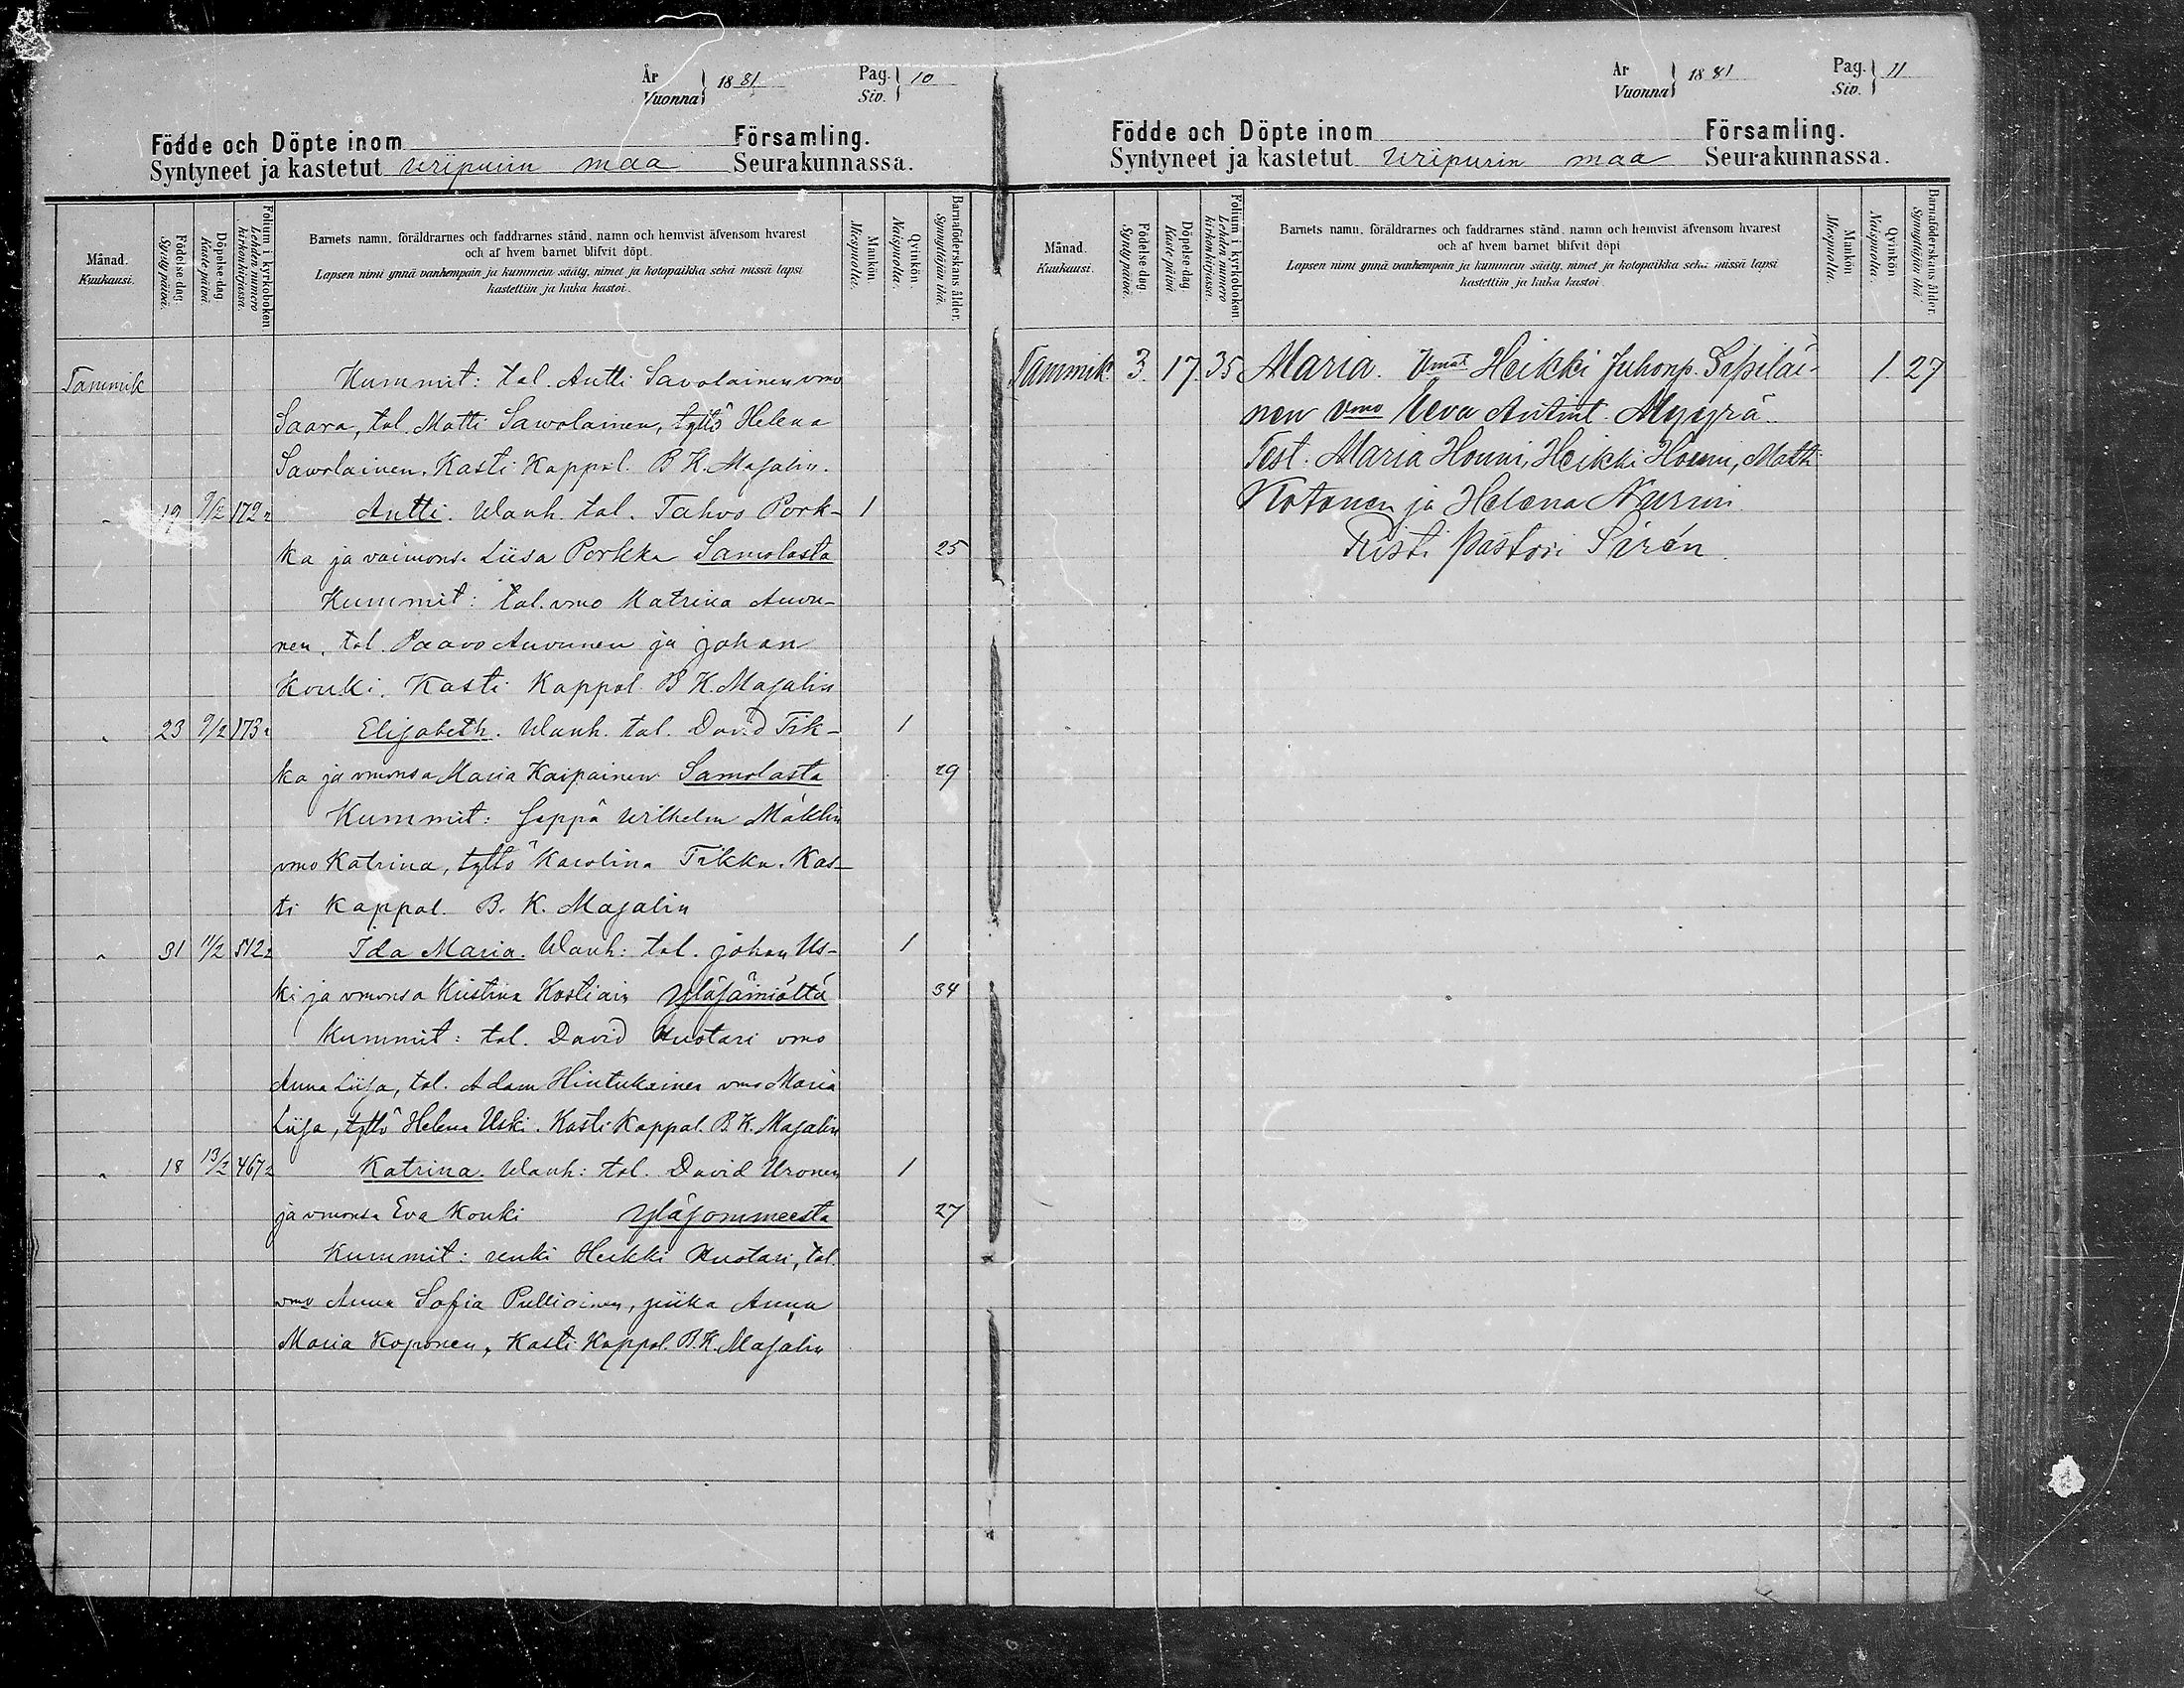 År
Vuonna } 1881
Pag.
Siv. } 10
Födde och Döpte inom Församling.
Syntyneet ja kastetut Wiipurin maa Seurakunnassa.
Månad.
Kuukausi.
Födelse-dag.
Syntypäivä.
Döpelse-dag.
Kaste päivä.
Folium i kyrkoboken
Lehden numero
kirkonkirjassa.
Barnets namn, föräldrarnes och faddrarnes stånd, namn och hemvist äfvensom hvarest
och af hvem barnet blifvit döpt.
Lapsen nimi ynnä vanhempain ja kummein sääty, nimet ja kotopaikka sekä missä lapsi
kastettiin ja kuka kastoi.
Mankön.
Miespuolta.
Qvinkön.
Naispuolta.
Barnaföderskans ålder.
Synnyttäjän ikä.
Tammik Kummit: tal. Antti Savolainen vmo
Saara, tal. Matti Sawolainen, tyttö Helena
Sawolainen. Kasti Kappal. B K. Majalin.
" 19 9/2 172 Antti. Wanh. tal. Tahvo Pork- 1
ka ja vaimonsa Liisa Porkka Samolasta 25
Kummit: tal. vmo Katrina Auvu-
nen, tal. Paavo Auvunen ja Johan
Kouki. Kasti Kappal. B K. Majalin
" 23 9/2 173 Elisabeth. Wanh. tal. David Tik- 1
ka ja vmonsa Maria Kaipainen Samolasta 29
Kummit: Seppä Wilhelm Mäklin
vmo Katrina, tyttö Karolina Tikka. Kas-
ti Kappal. B. K. Majalin
" 31 11/2 512 Ida Maria. Wanh: tal. Johan Us- 1
ki ja vmonsa Kristina Kostiain Yläsäiniöltä 34
Kummit: tal. David Huotari vmo
Anna Liisa, tal. Adam Hintukainen vmo Maria
Liisa, tyttö Helena Uski. Kasti Kappal. B. K. Majalin
" 18 13/2 467 Katrina. Wanh: tal. David Uronen 1
ja vmonsa Eva Kouki Yläsommeesta 27
Kummit: renki Heikki Huotari, tal.
vmo Anna Sofia Pulliainen, piika Anna
Maria Koponen, Kasti Kappal. B. K. Majalin
År
Vuonna } 1881
Pag.
Siv. } 11
Födde och Döpte inom Församling.
Syntyneet ja kastetut Wiipurin maa Seurakunnassa.
Månad.
Kuukausi.
Födelse-dag.
Syntypäivä.
Döpelse-dag.
Kaste päivä.
Folium i kyrkoboken
Lehden numero
kirkonkirjassa.
Barnets namn, föräldrarnes och faddrarnes stånd, namn och hemvist äfvensom hvarest
och af hvem barnet blifvit döpt
Lapsen nimi ynnä vanhempain ja kummein sääty, nimet ja kotopaikka sekä missä lapsi
kastettiin ja kuka kastoi.
Mankön
Miespuolta.
Qvinkön.
Naispuolta.
Barnaföderskans ålder.
Synnyttäjän ikä.
Tammik. 3. 17. 35 Maria. Heikki Juhonp. Sipiläi- 1. 27
nen vmo Eeva Antint. Myyrä
Test. Maria Honni, Heikki Honni, Matti
Totonen ja Helena Nurmi.
Risti Pastori Sirén.